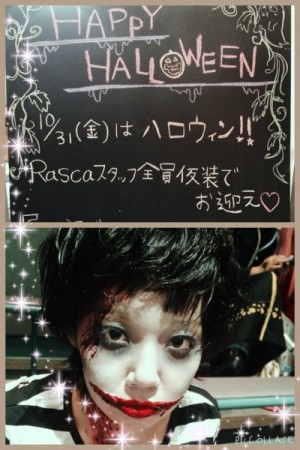 HAPPY
HALLOWEEN
10/31(金)は ハロウィン!!
Rascaスタッフ全員仮装で
お迎え♡
PicCollage